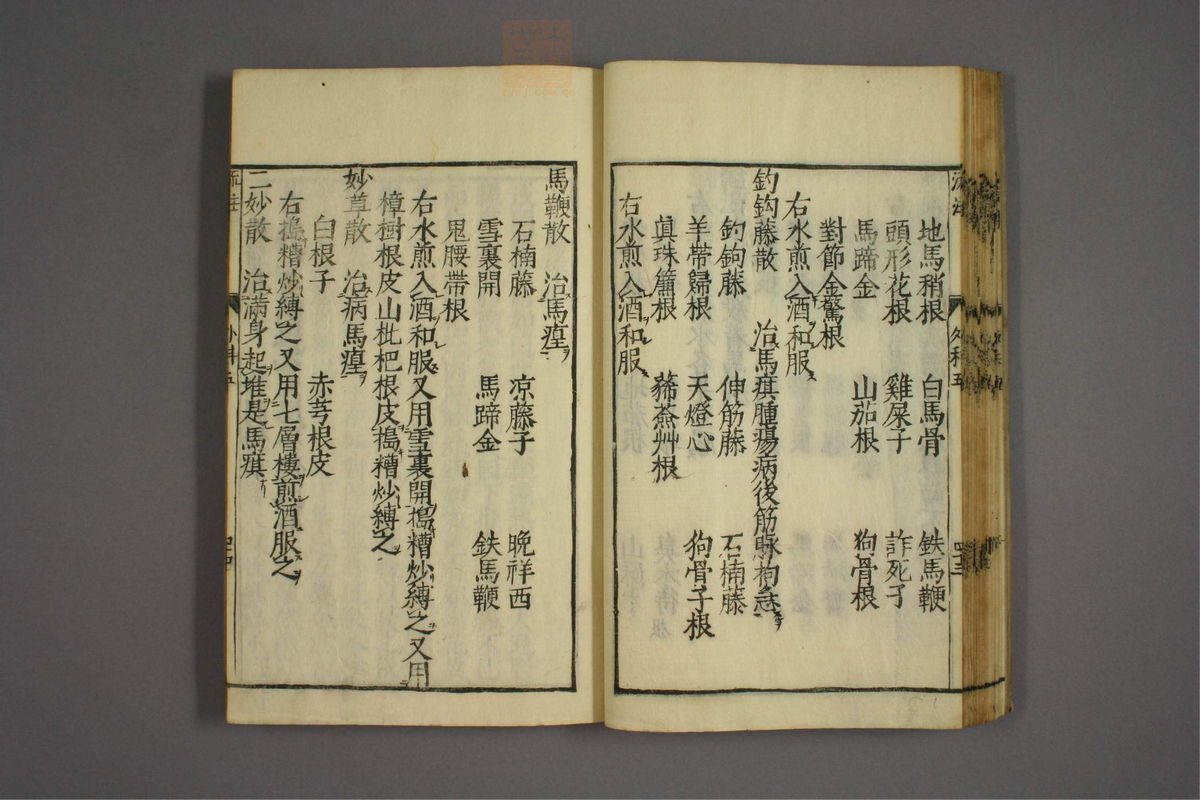 地馬稍根　白馬骨　鉄馬鞭
頭形花根　雞屎子　詐死子
馬蹄金　山茄根　狗骨根
對節金驚根
右水煎入酒和服
釣鈎藤散　治馬㾏腫瘍病後筋脉拘急
釣鈎藤　伸筋藤　石楠藤
羊帶歸根　天燈心　狗骨子根
眞珠簾根　蓊䕕艸根
右水煎入酒和服
馬鞭散　治馬㾮
石楠藤　凉藤子　晩祥西
雪裏開　馬蹄金　鉄馬鞭
鬼腰帶根
右水煎入酒和服又用雪裏開搗糟炒縛之又用
樟樹根皮山枇杷根皮搗糟炒縛之
妙草散　治病馬㾮
白根子　赤芎根皮
右搗糟炒縛之又用七層樓煎酒服之
二妙散　治滿身起堆是馬㾏
流注
外科五
四十